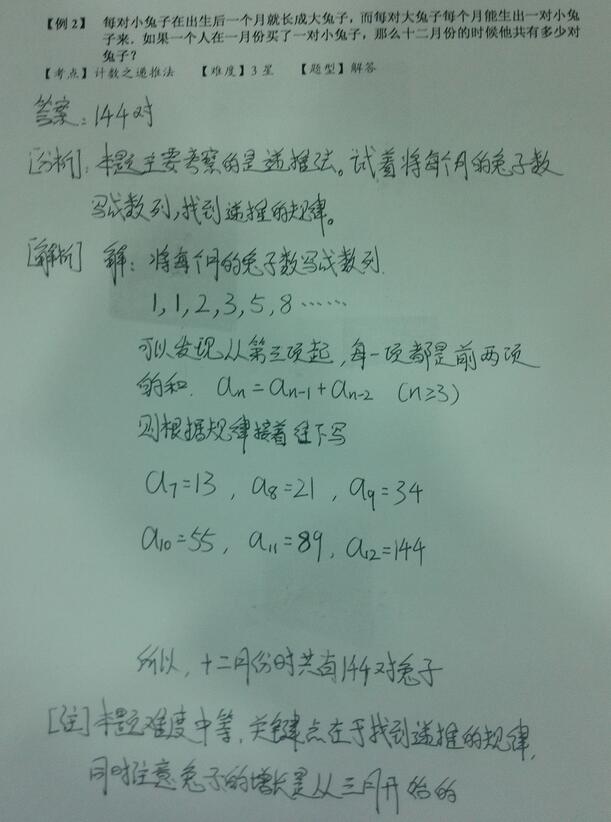 【例 2】 每对小兔子在出生后一个月就长成大兔子，而每对大兔子每个月能生出一对小兔
子来．如果一个人在一月份买了一对小兔子，那么十二月份的时候他共有多少对
兔子？
【考点】计数之递推法 【难度】3 星 【题型】解答
答案：144对
[分析]：本题主要考察的是递推法。试着将每个月的兔子数
写成数列，找到递推的规律。
[解析] 解：将每个月的兔子数写成数列.
1,1,2,3,5,8……
可以发现从第三项起，每一项都是前两项
的和. aₙ=aₙ₋₁+aₙ₋₂ (n≥3)
则根据规律接着往下写
a₇=13，a₈=21，a₉=34
a₁₀=55，a₁₁=89，a₁₂=144
所以，十二月份时共有144对兔子
[注]本题难度中等，关键点在于找到递推的规律，
同时注意兔子的增长是从三月开始的